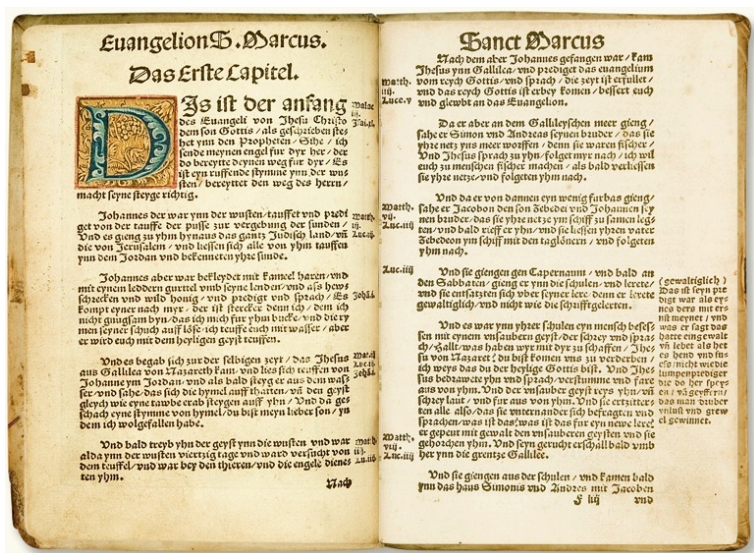 Euangelion S. Marcus.
Das Erste Capitel.
Dis ist der anfang
des Euangeli von Jhesu Christo
dem son Gottis / als geschrieben ste
het ynn den Propheten / Sihe / ich
sende meynen engel fur dyr her / der
do bereyte deynen weg fur dyr / Es
ist eyn ruffende stymme ynn der wu
sten / bereyttet den weg des herrn /
macht seyne steyge richtig.
Johannes der war ynn der wusten / tauffet vnd predi
get von der tauffe der pusse zur vergebung der sunden /
Vnd es gieng zu yhm hynaus das gantz Judisch land / vñ
die von Jerusalem / vnd liessen sich alle von yhm tauffen
ynn dem Jordan vnd bekenneten yhre sunde.
Johannes aber war bekleydet mit kameel haren / vnd
mit eynem leddern gurttel vmb seyne lenden / vnd ass hew
schrecken vnd wild honig / vnd predigt vnd sprach / Es
kompt eyner nach myr / der ist stercker denn ich / dem ich
nicht gnugsam byn / das ich mich fur yhm bucke / vnd die ry
men seyner schuch auff löse / ich teuffe euch mit wasser / aber
er wird euch mit dem heyligen geyst teuffen.
Vnd es begab sich zur der selbigen zeyt / das Jhesus
aus Gallilea von Nazareth kam / vnd lies sich teuffen von
Johanne ym Jordan / vnd als bald steyg er aus dem was
ser / vnd sahe / das sich die hymel auff thatten / vñ den geyst
gleych wie eyne tawbe erab steygen auff yhn / Vnd da ge
schach eyne stymme von hymel / du bist meyn lieber son / yn
dem ich wolgefallen habe.
Vnd bald treyb yhn der geyst ynn die wusten / vnd war
alda ynn der wusten viertzig tage vnd ward versucht von
dem teuffel / vnd war bey den thieren / vnd die engele dienes
ten yhm.
Nach
Sanct Marcus
Nach dem aber Johannes gefangen war / kam
Jhesus ynn Gallilea / vnd prediget das euangelium
vom reych Gottis / vnd sprach / die zeyt ist erfullet /
vnd das reych Gottis ist erbey komen / bessert euch
vnd glewbt an das Euangelion.
Da er aber an dem Gallileyschen meer gieng /
sahe er Simon vnd Andreas seynen bruder / das sie
yhre netz yns meer worffen / denn sie waren fischer /
Vnd Jhesus sprach zu yhn / folget myr nach / ich wil
euch zu menschen fischer machen / als bald verliessen
sie yhre netze / vnd folgeten yhm nach.
Vnd da er von dannen eyn wenig furbas gieng /
sahe er Jacobon den son Zebedei vnd Johannen sey
nen bruder / das sie yhre netze ym schiff zu samen leg
ten / vnd bald rieff er yhn / vnd sie liessen yhren vater
Zebedeon ym schiff mit den taglönern / vnd folgeten
yhm nach.
Vnd sie giengen gen Capernaum / vnd bald an
den Sabbaten / gieng er ynn die schulen / vnd lerete /
vnd sie entsatzten sich vber seyner lere / denn er lerete
gewaltiglich / vnd nicht wie die schrifftgelerten.
Vnd es war ynn yhrer schulen eyn mensch beses
sen mit eynem vnsaubern geyst / der schrey vnd spra
ch / Halt / was haben wyr mit dyr zu schaffen / Jhe
su von Nazaret? du bist komen vns zu verderben /
ich weys das du der heylige Gottis bist. Vnd Jhe
sus bedrawete yhn vnd sprach / verstumme vnd fare
aus von yhm. Vnd der vnsauber geyst reys yhn / vñ
schrey laut / vnd fur aus von yhm. Vnd sie ertzitter
ten alle also / das sie vnternander sich befragten vnd
sprachen / was ist das? was ist das fur eyn newe lere?
er gepeut mit gewalt den vnsauberen geysten vnd sie
gehorchen yhm. Vnd seyn gerucht erschall bald vmb
her ynn die grentze Gallilee.
Vnd sie giengen aus der schulen / vnd kamen bald
ynn das haus Simonis vnd Andres mit Jacoben
vnd
Matth.
iiij.
Luce.v
Matth.
vij.
Luc.iiij
Matth.
viij.
Luc.iiij
( gewaltiglich )
Das ist seyn pre
digt war als ey
nes ders mit ern
st meynet / vnd
was er sagt das
hatte eyn gewalt
vñ lebet als het
es hend vnd fu
ess / nicht wie die
lumpenprediger
die do her speye
en / vñ geyffern /
das man druber
vnlust vnd grew
el gewinnet.